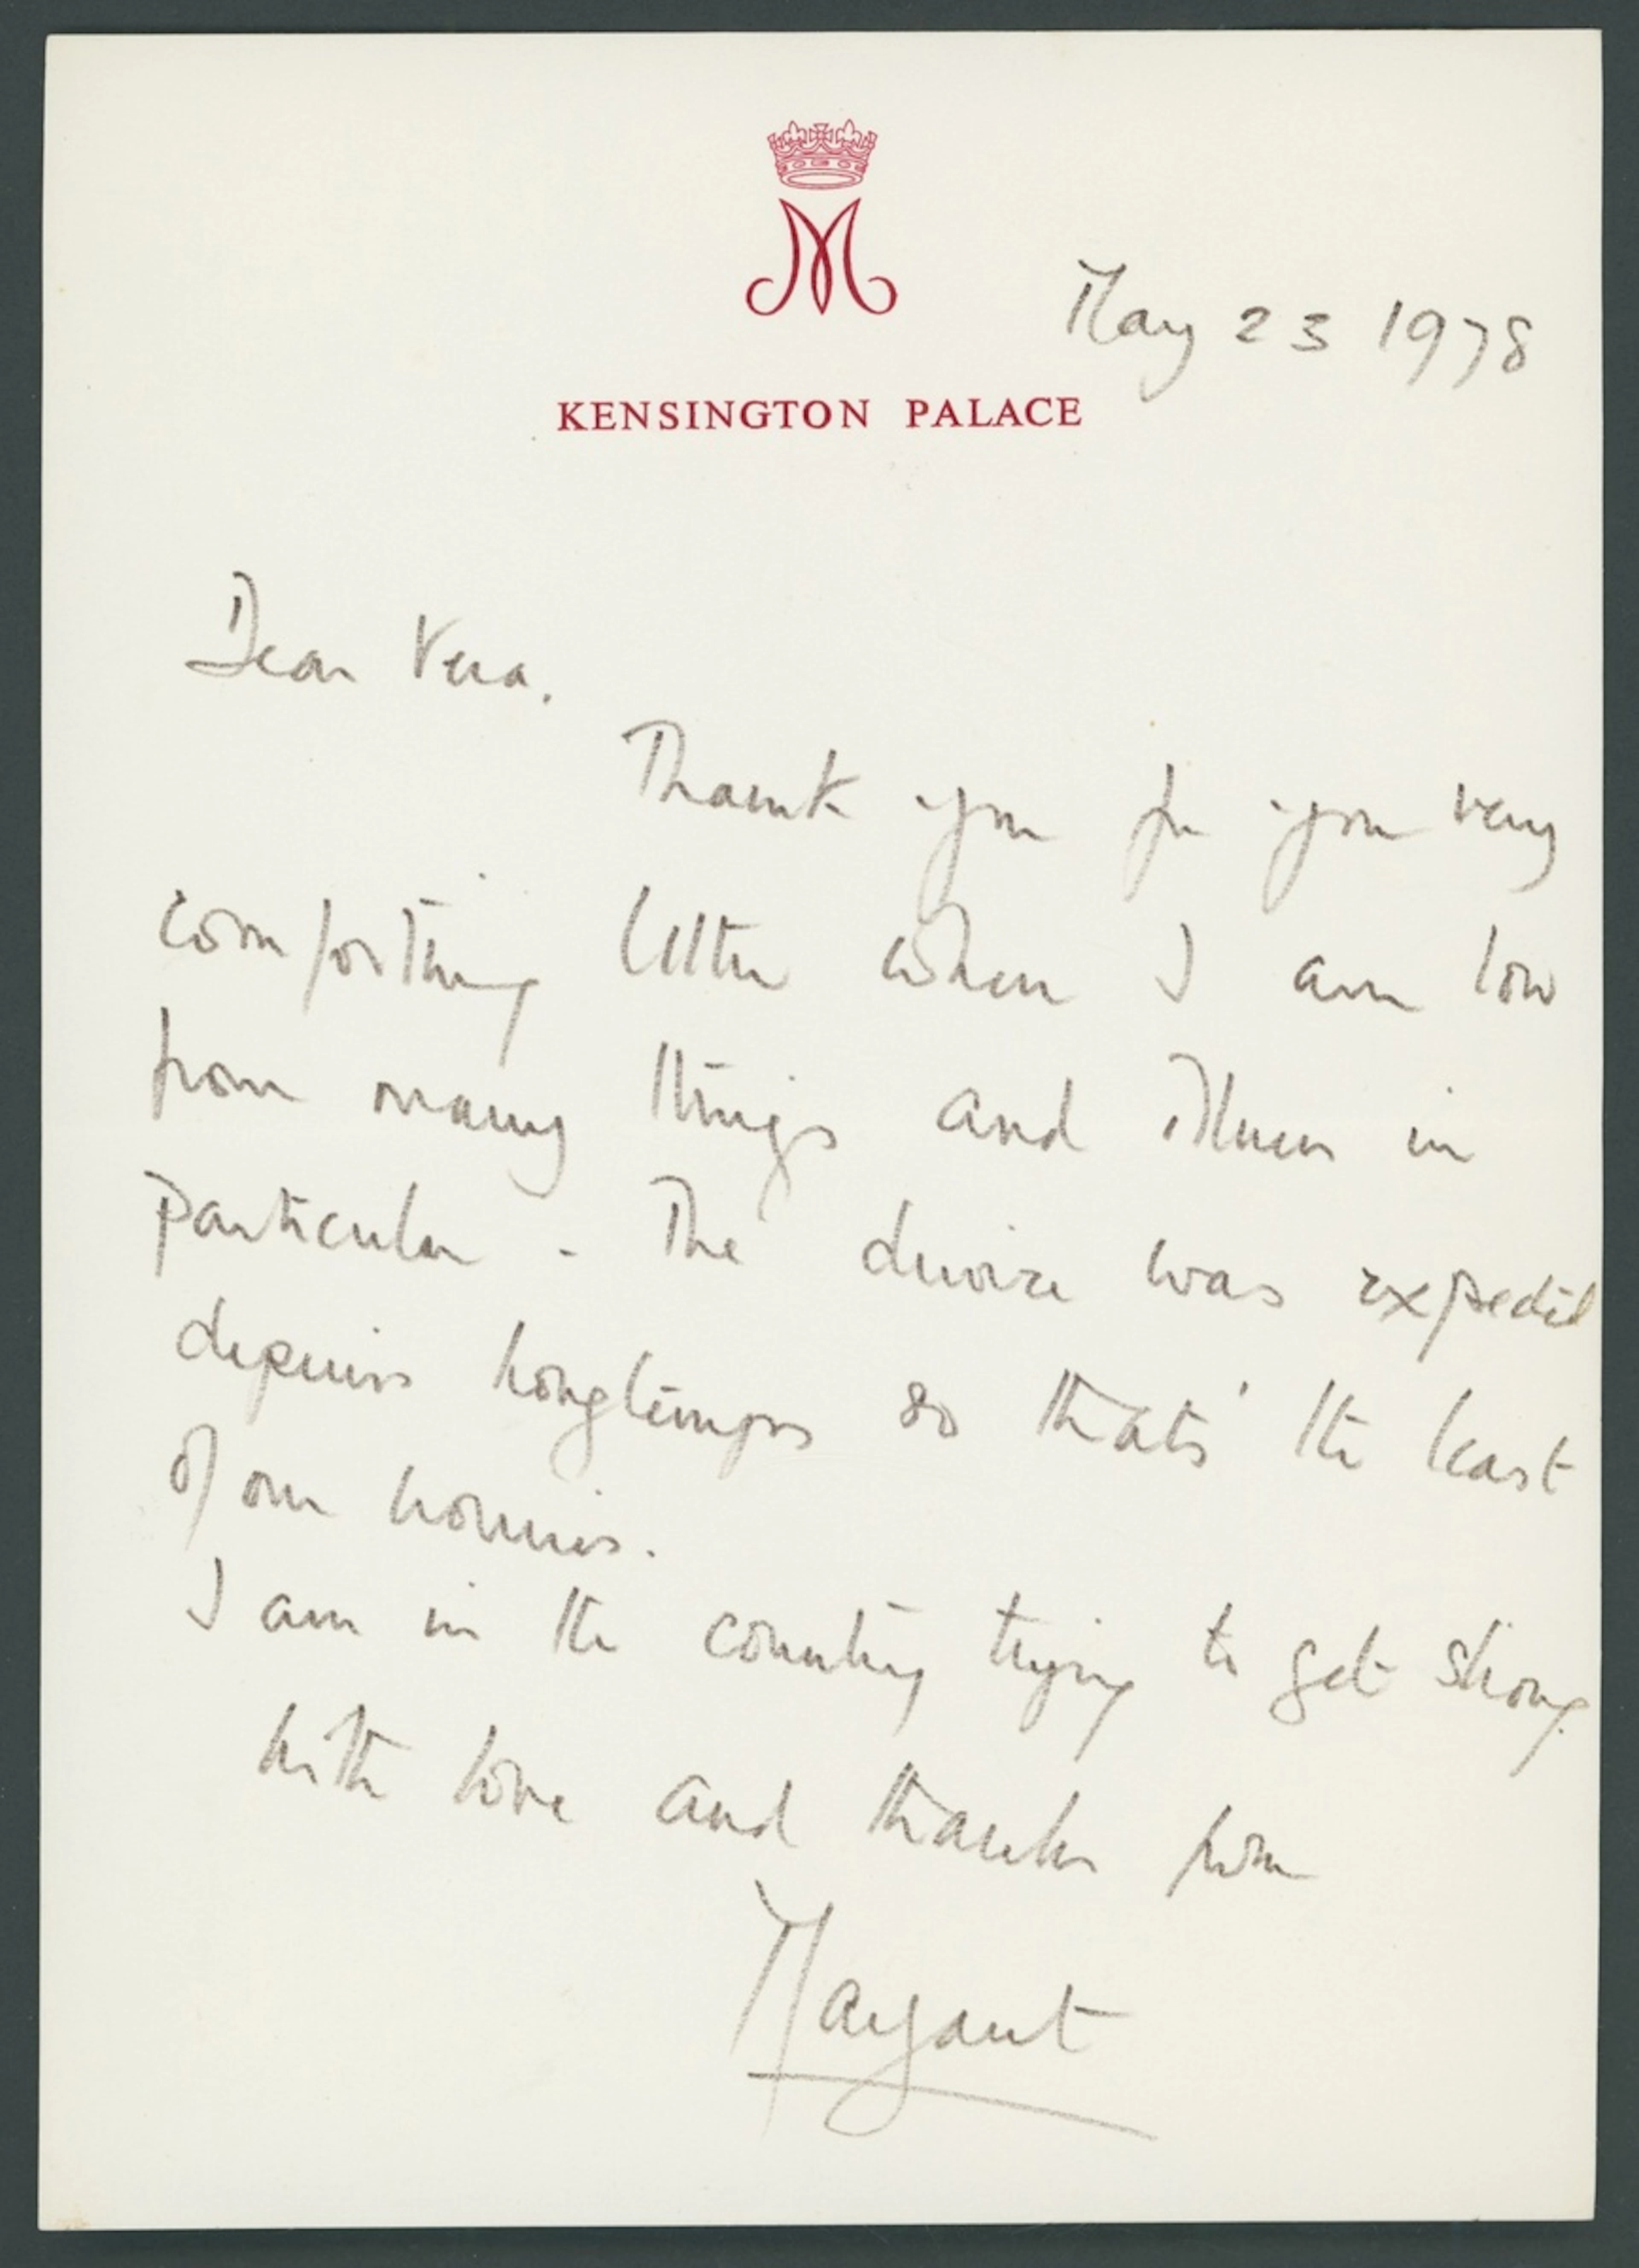 M
May 23 1978
KENSINGTON PALACE
Dear Vera.
Thank you for your very
comforting letter when I am low
from many things and illness in
particular - The divorce was expected
depuis longtemps so thats' the least
of our worries.
I am in the country trying to get strong.
With love and thanks from
Margaret